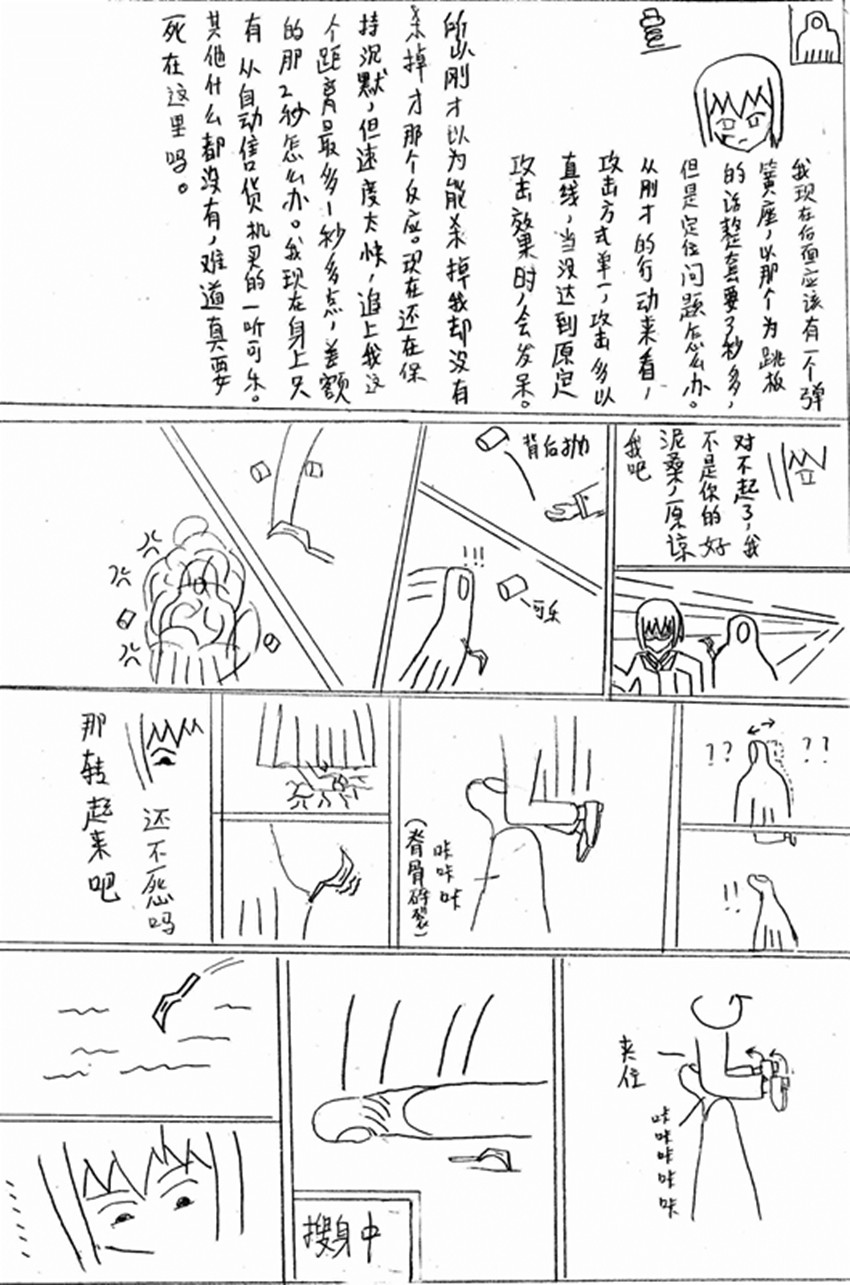 我现在后面应该有一个弹
簧座，以那个为跳板
的话整套要3秒多，
但是定位问题怎么办。
从刚才的行动来看，
攻击方式单一，攻击多以
直线，当没达到原定
攻击效果时，会发呆。
所以刚才以为能杀掉我却没有
杀掉才那个反应。现在还在保
持沉默，但速度太快，追上我这
个距离最多1秒多点，差额
的那2秒怎么办。我现在身上只
有从自动售货机买的一听可乐。
其他什么都没有，难道真要
死在这里吗。
对不起了，我
不是你的好
泥桑，原谅
我吧
背后抛
!!!
可乐
?? ??
!!
咔咔咔
(脊骨碎裂)
还不死吗
那转起来吧
夹住
咔咔咔咔咔
搜身中